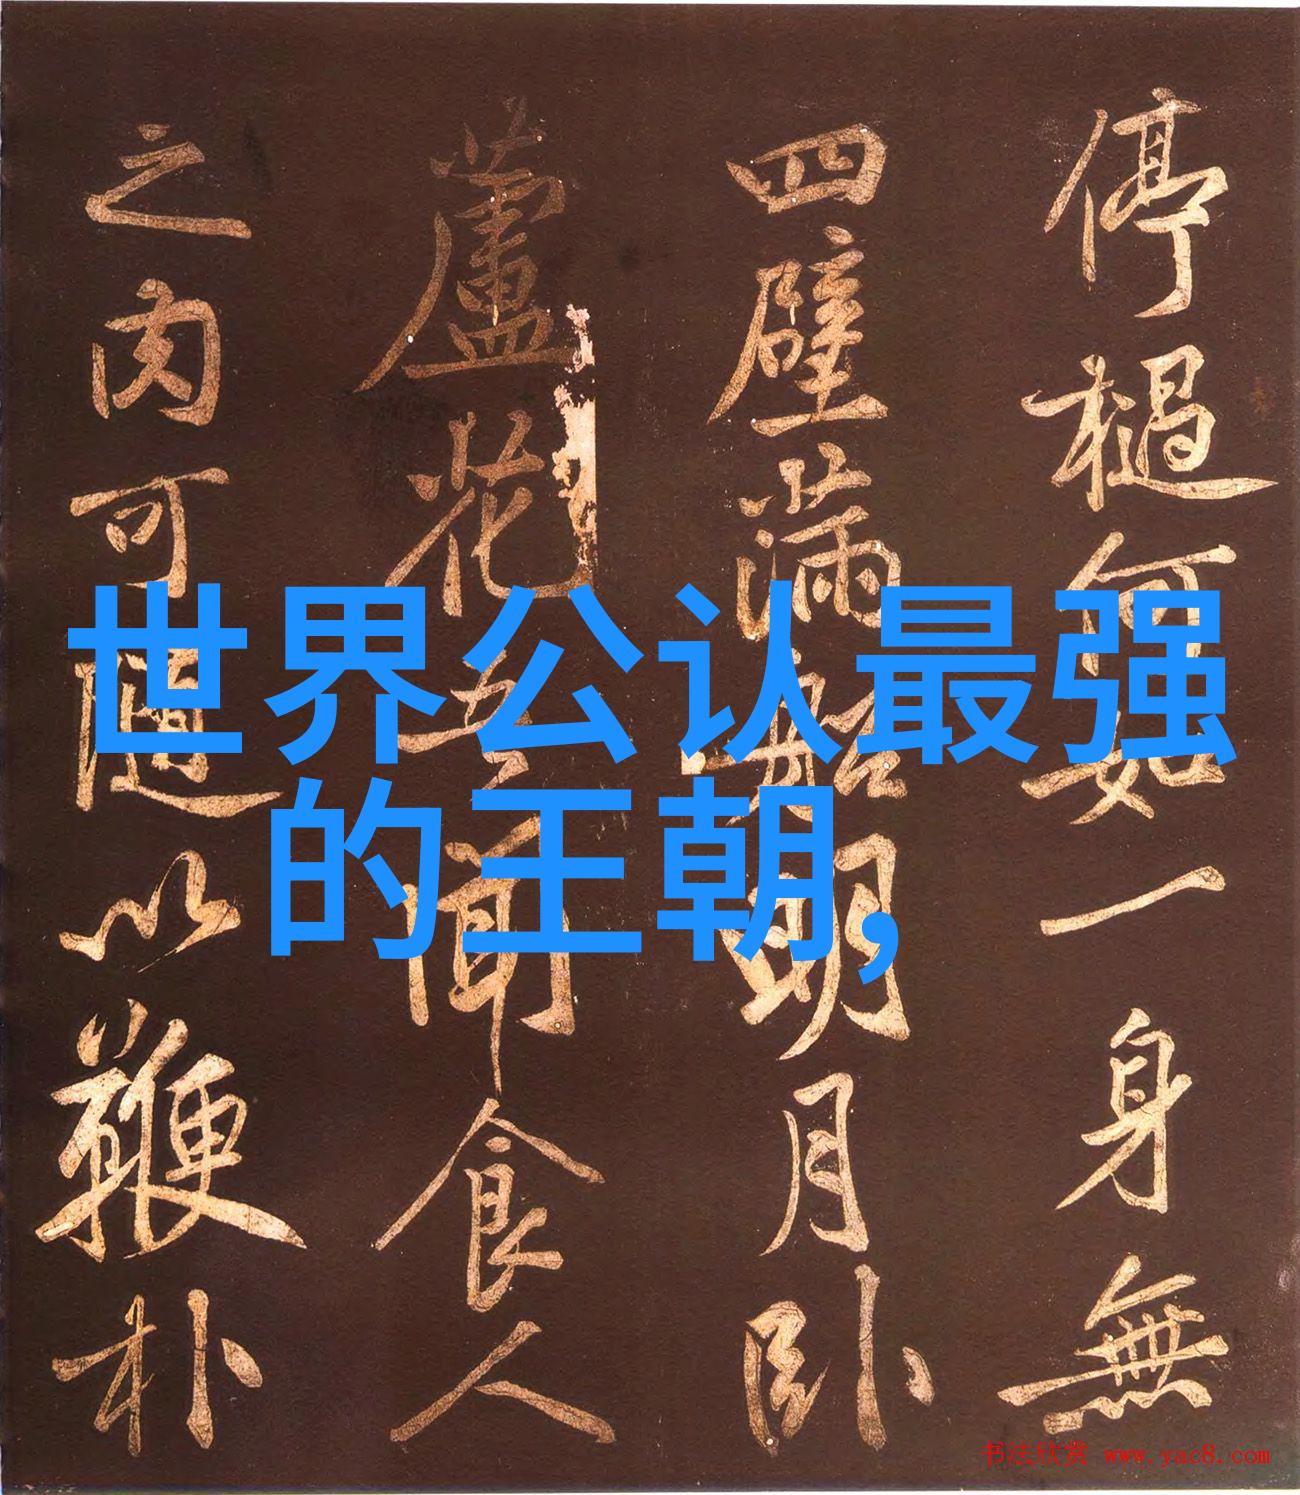 停檛何如一身無
四壁滿船明月卧
蘆花
聞食人
之内可隨以鞭朴
世界公认最强
的王朝,
书法欣赏 www.yac8.com